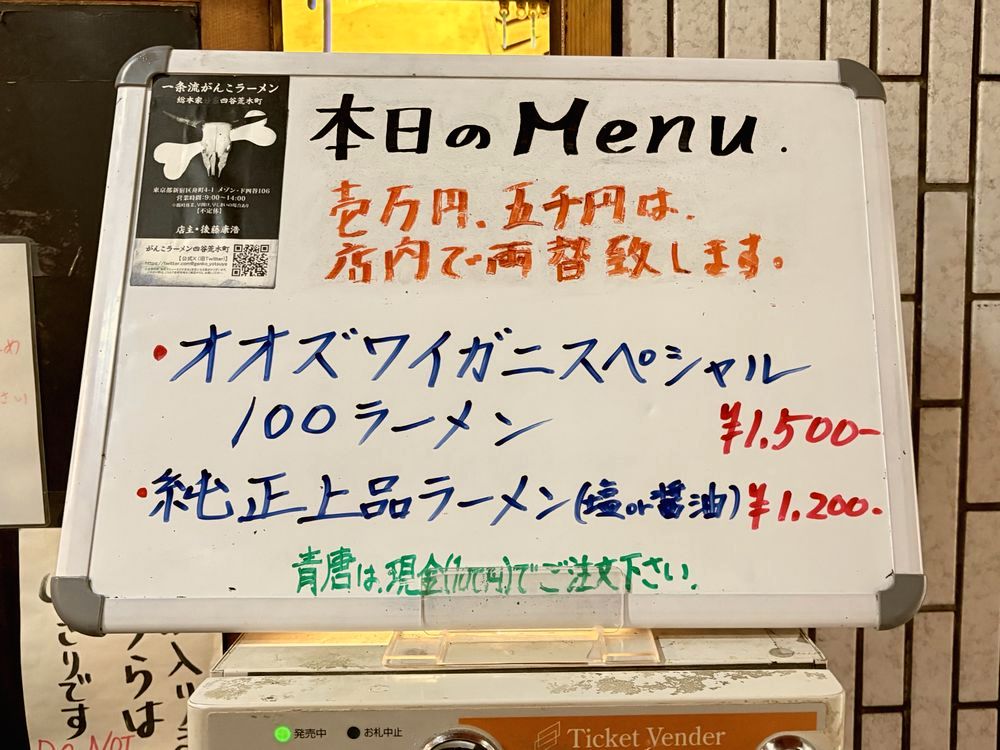 一条流がんこラーメン
総本家 四谷荒木町
東京都新宿区舟町4-1 メゾン・ド四谷106
営業時間:9:00～14:00
【不定休】
店主・後藤康浩
がんこラーメン四谷荒木町
【公式X(旧Twitter)】
https://twitter.com/ganko_yotsuya
本日のMenu.
壱万円、五千円は、
店内で両替致します。
・オオズワイガニスペシャル
100ラーメン ¥1,500-
・純正上品ラーメン(塩or醤油) ¥1,200-
青唐は、現金(100円)でご注文下さい。
発売中
お札中止
Ticket Vender
きりです
らは
入ツ
Do NOT
め
さい